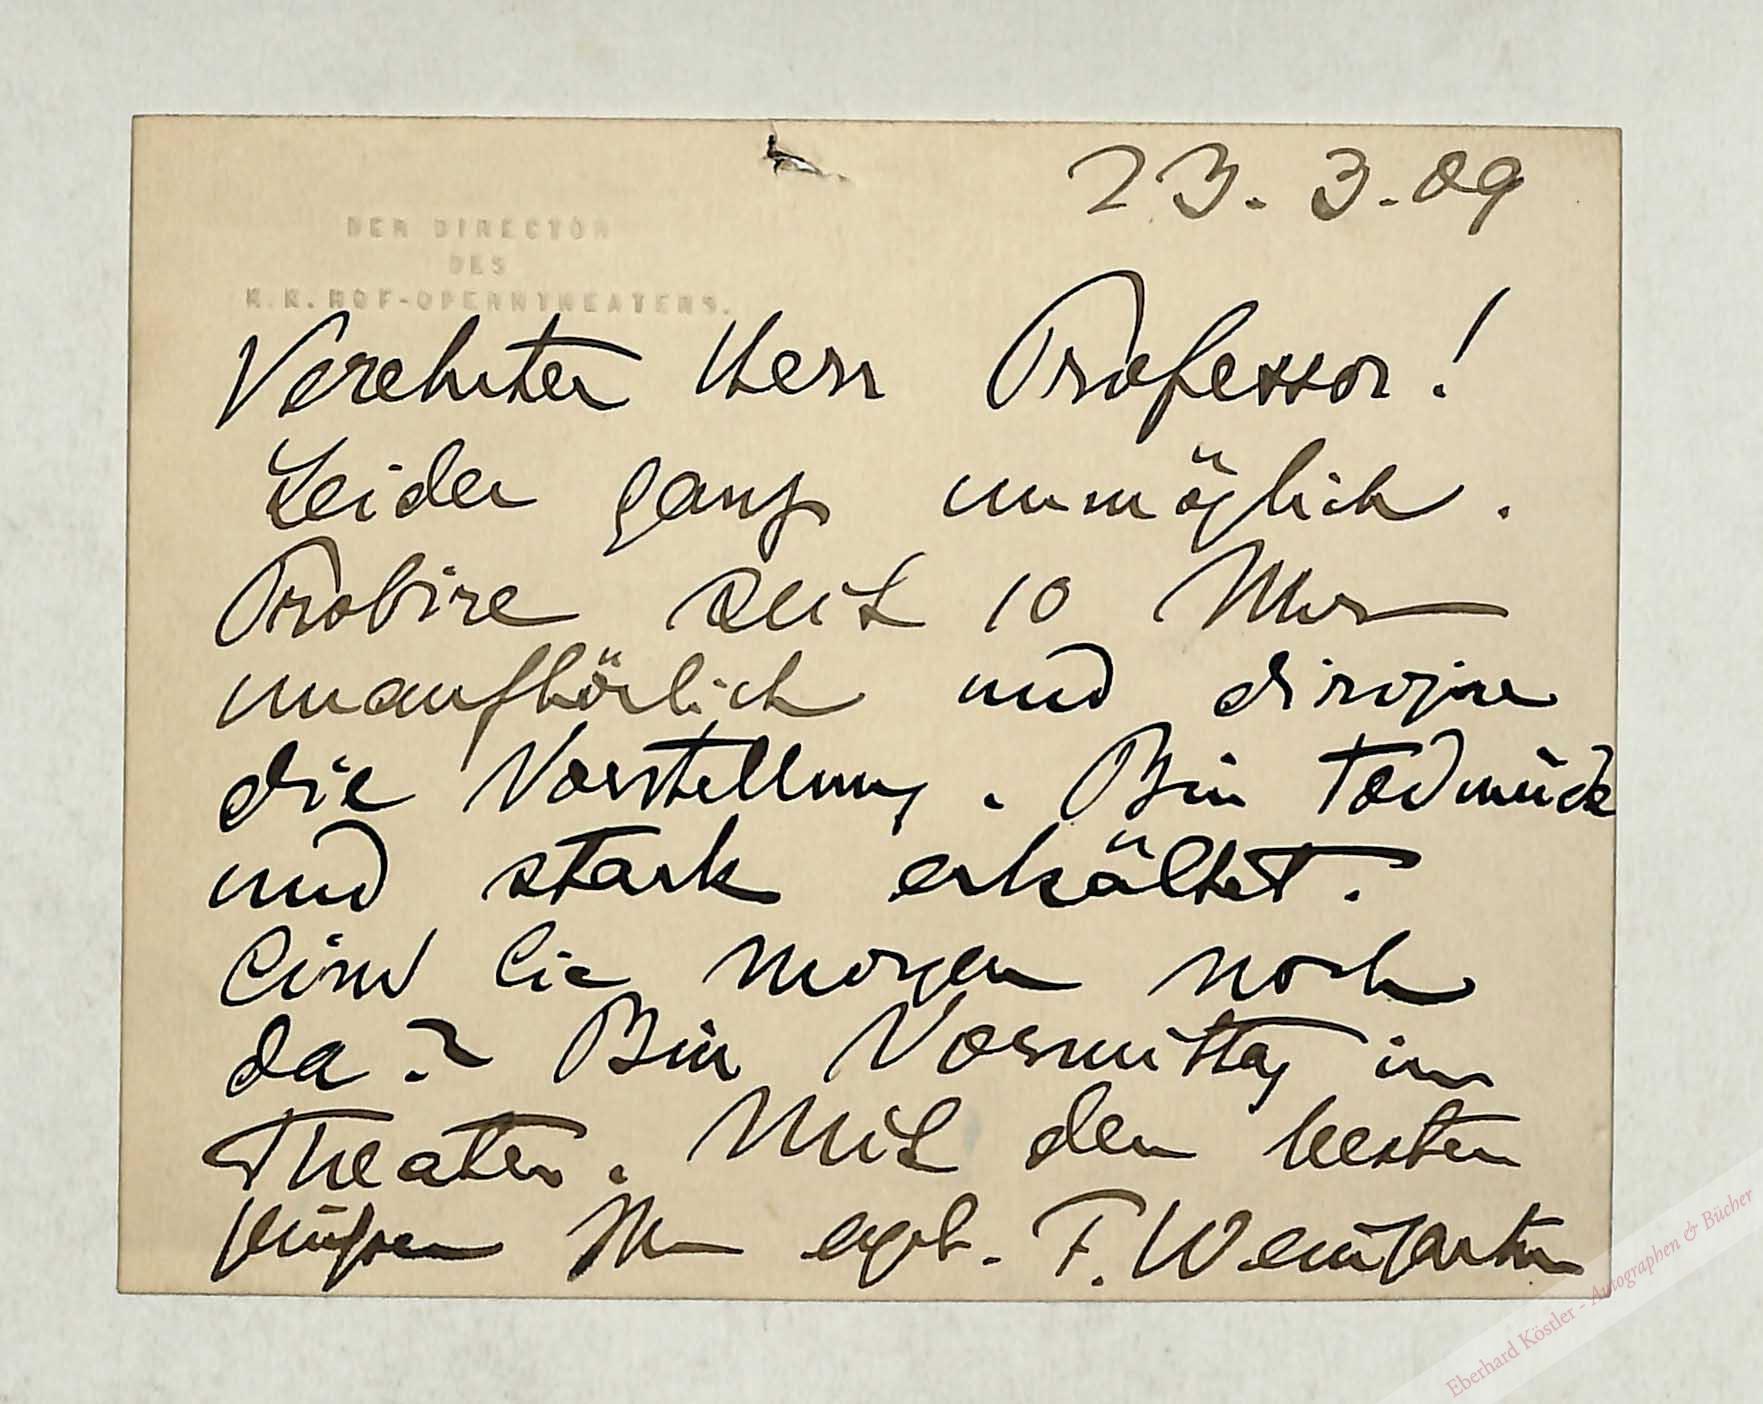 23. 3. 09
DER DIRECTOR
DES
K. K. HOF-OPERNTHEATERS.
Verehrter Herr Professor!
Leider ganz unmöglich.
Probire seit 10 Uhr
unaufhörlich und dirigire
die Vorstellung. Bin todmüde
und stark erkältet.
Sind Sie morgen noch
da? Bin Vormittag im
Theater. Mit den besten
Grüßen Ihr ergb. F. Weingartner
Eberhard Köstler - Autographen & Bücher